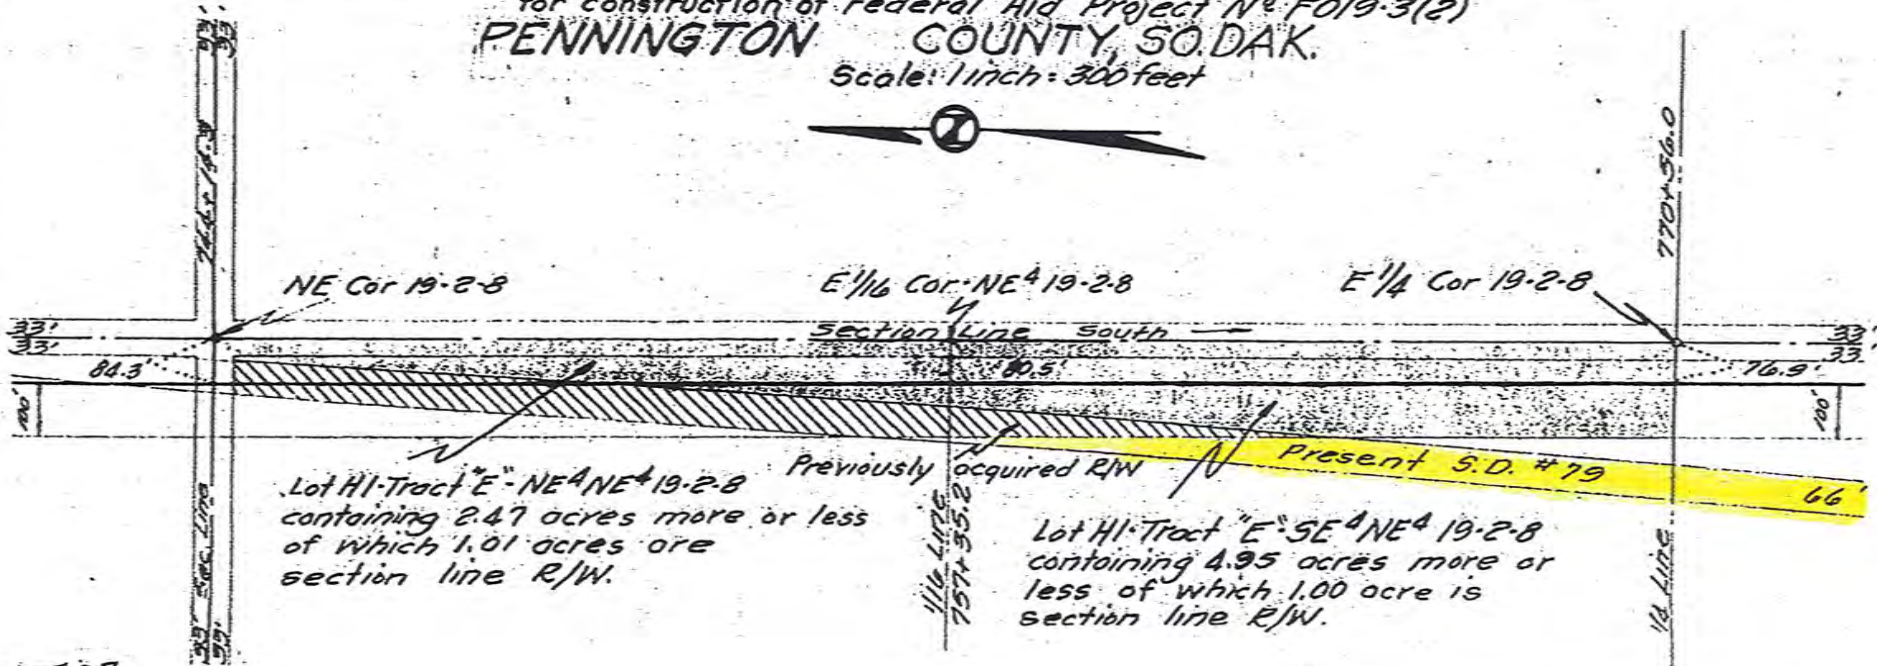 for construction of Federal Aid Project Nº F019-3(2)
PENNINGTON COUNTY, SO. DAK.
Scale: 1 inch = 300 feet
33'
33'
744+14.3
770+56.0
NE Cor 19-2-8
E 1/16 Cor. NE⁴ 19-2-8
E 1/4 Cor 19-2-8
33'
33'
Section Line South
33'
33'
84.3'
80.5'
76.9'
100'
100'
Previously acquired R/W
Present S.D. #79
66'
Lot H1-Tract "E"-NE⁴NE⁴ 19-2-8
containing 2.47 acres more or less
of which 1.01 acres are
section line R/W.
Lot H1-Tract "E"-SE⁴NE⁴ 19-2-8
containing 4.95 acres more or
less of which 1.00 acre is
section line R/W.
Sec. Line
33'
33'
1/16 LINE
757+35.2
1/4 Line